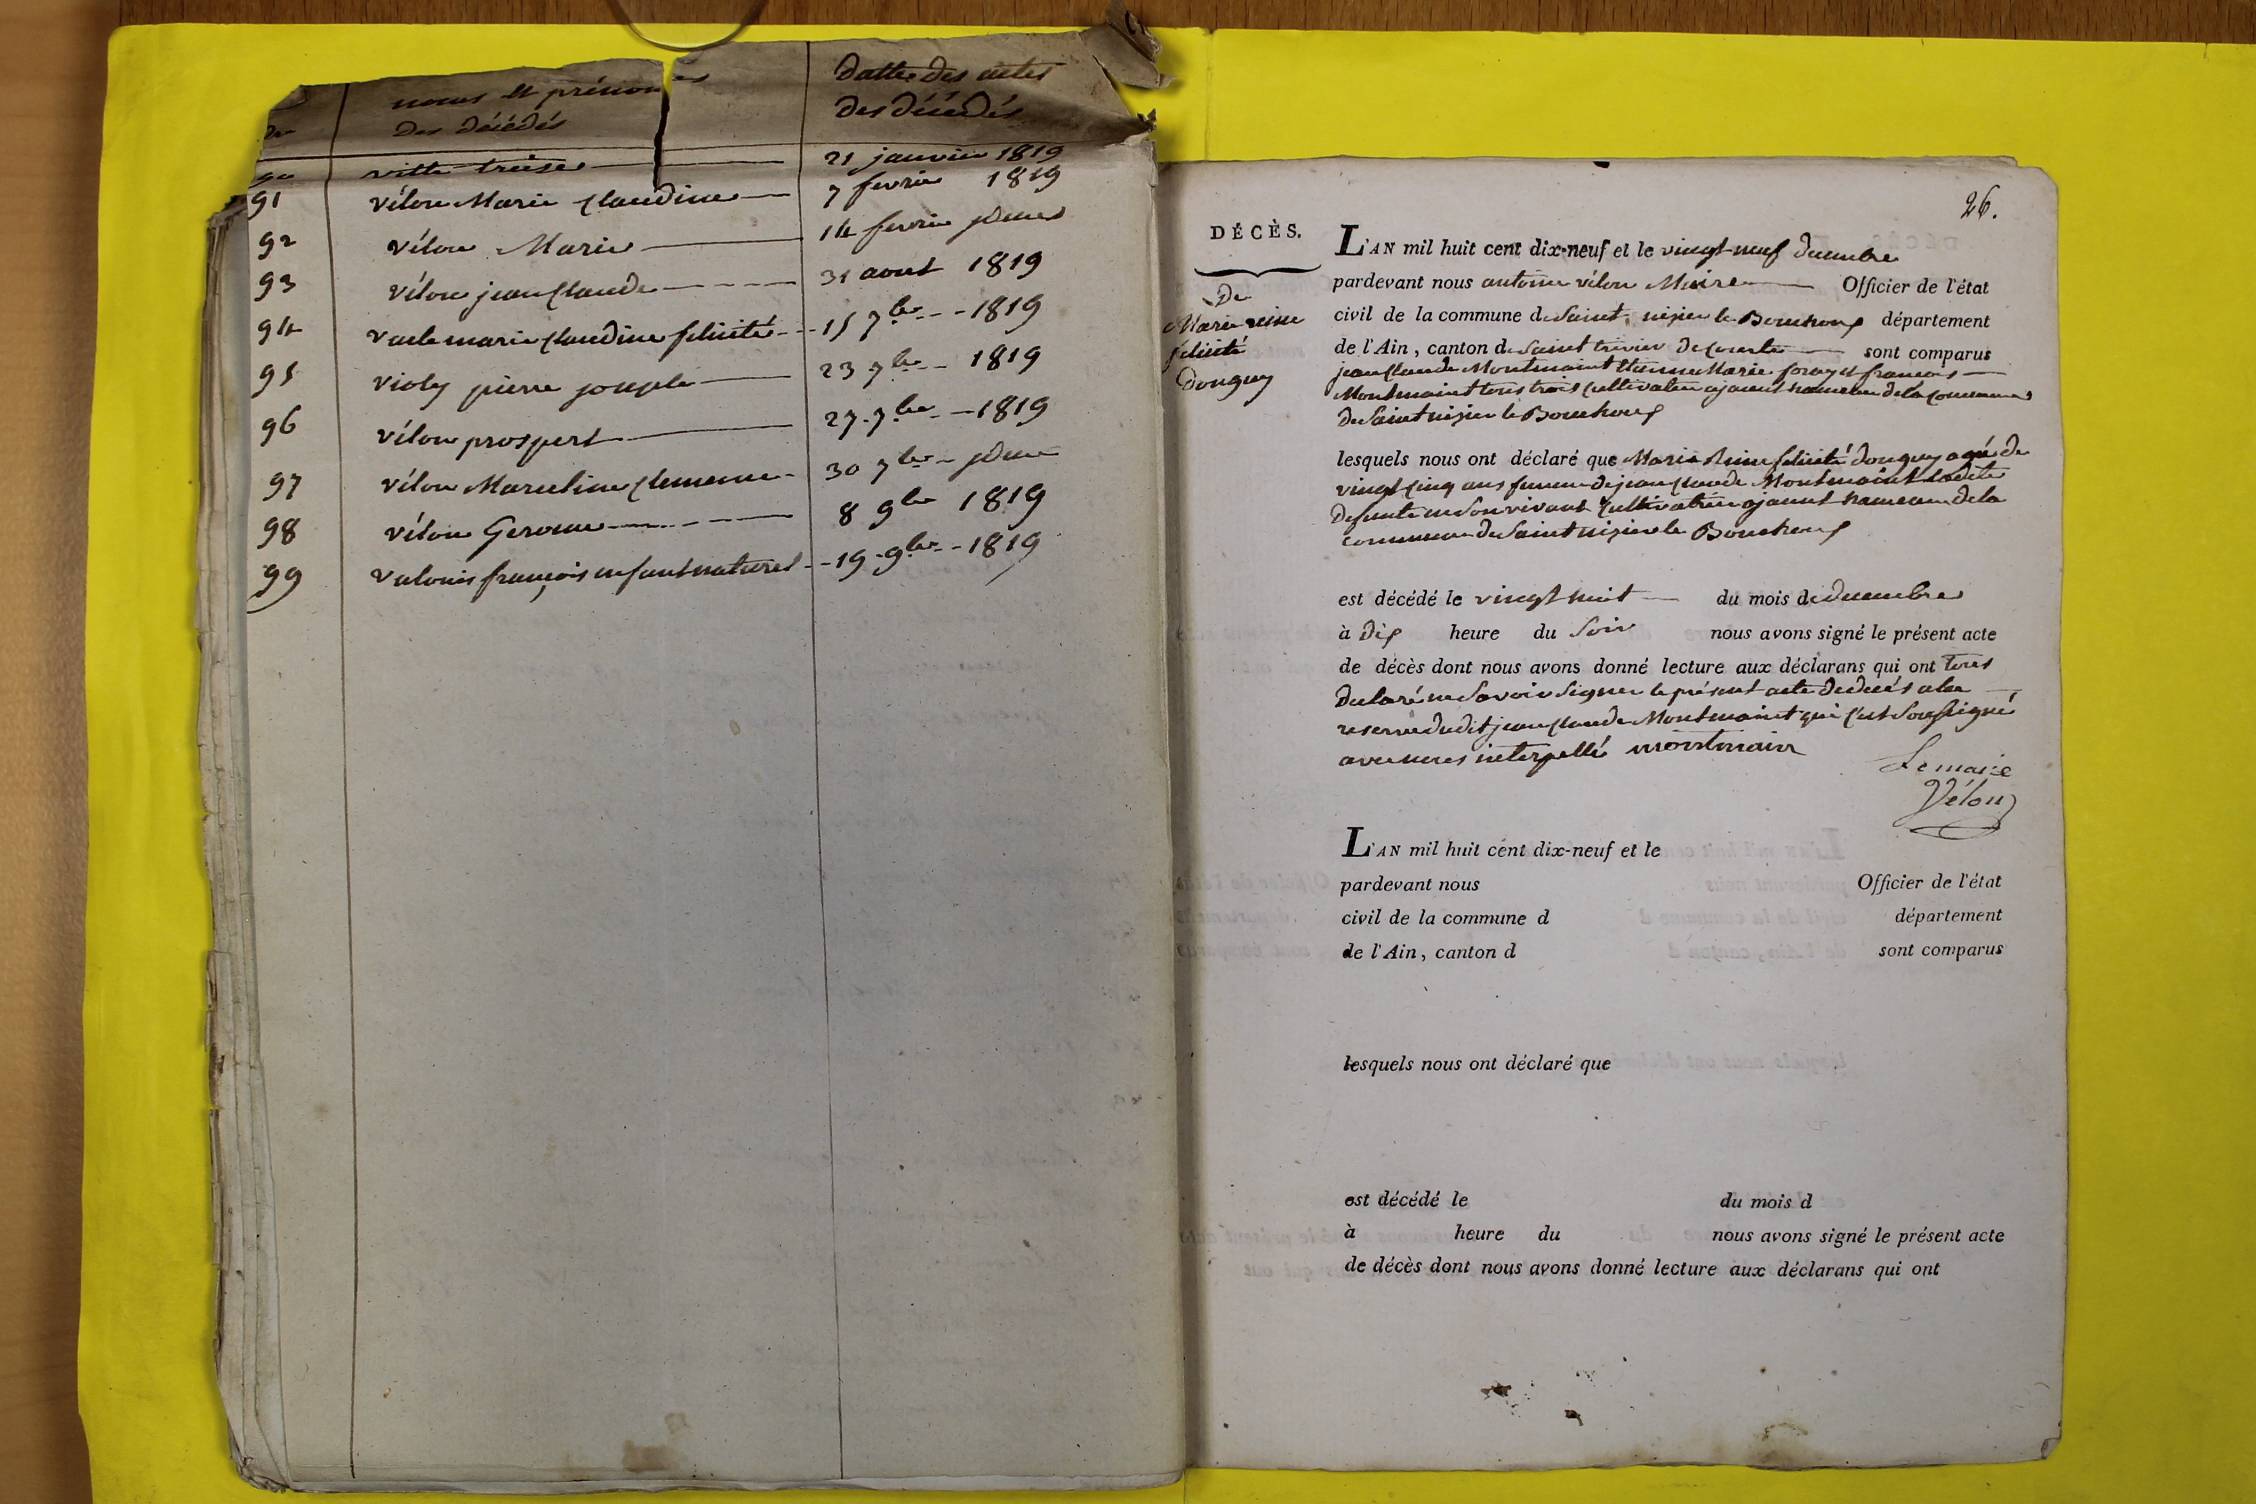 noms et prénoms
des décédés
datte des actes
des décédés
90 vitte treise 21 janvier 1819
91 vélon Marie Claudine 7 fevrier 1819
92 vélon Marie 14 fevrier idem
93 vélon jean Claude 31 aout 1819
94 marie Claudine felicité 15 7bre 1819
95 violy pierre josuple 23 7bre 1819
96 vélon prospert 27 7bre 1819
97 vélon Marceline Clemence 30 7bre idem
98 vélon Gerome 8 9bre 1819
99 valouis françois enfant naturel 19 9bre 1819
26.
DÉCÈS.
De
Marie reine
felicité
Donguy
L'AN mil huit cent dix-neuf et le vingt neuf decembre
pardevant nous antoine vélon Maire Officier de l'état
civil de la commune de Saint nizier le Bouchoux département
de l'Ain, canton de Saint trivier de Courtes sont comparus
jean Claude Montmaint Etienne Marie foray et francois
Montmaint tous trois Cultivateur ajouent hameau de la commune
de Saint nizier le Bouchoux
lesquels nous ont déclaré que Marie Reine felicité donguy agée de
vingt Cinq ans femme de jean Claude Montmaint ladite
defunte en son vivant Cultivatrice ajouent hameau de la
commune de Saint nizier le Bouchoux
est décédé le vingt huit du mois de decembre
à dix heure du Soir nous avons signé le présent acte
de décès dont nous avons donné lecture aux déclarans qui ont tous
declaré ne Savoir Signer le présent acte de deces a la
reserve dudit jean Claude Montmaint qui C'est Soussigné
avec nous interpellé montmain
Le maire
Vélon
L'AN mil huit cent dix-neuf et le
pardevant nous Officier de l'état
civil de la commune d département
de l'Ain, canton d sont comparus
lesquels nous ont déclaré que
est décédé le du mois d
à heure du nous avons signé le présent acte
de décès dont nous avons donné lecture aux déclarans qui ont